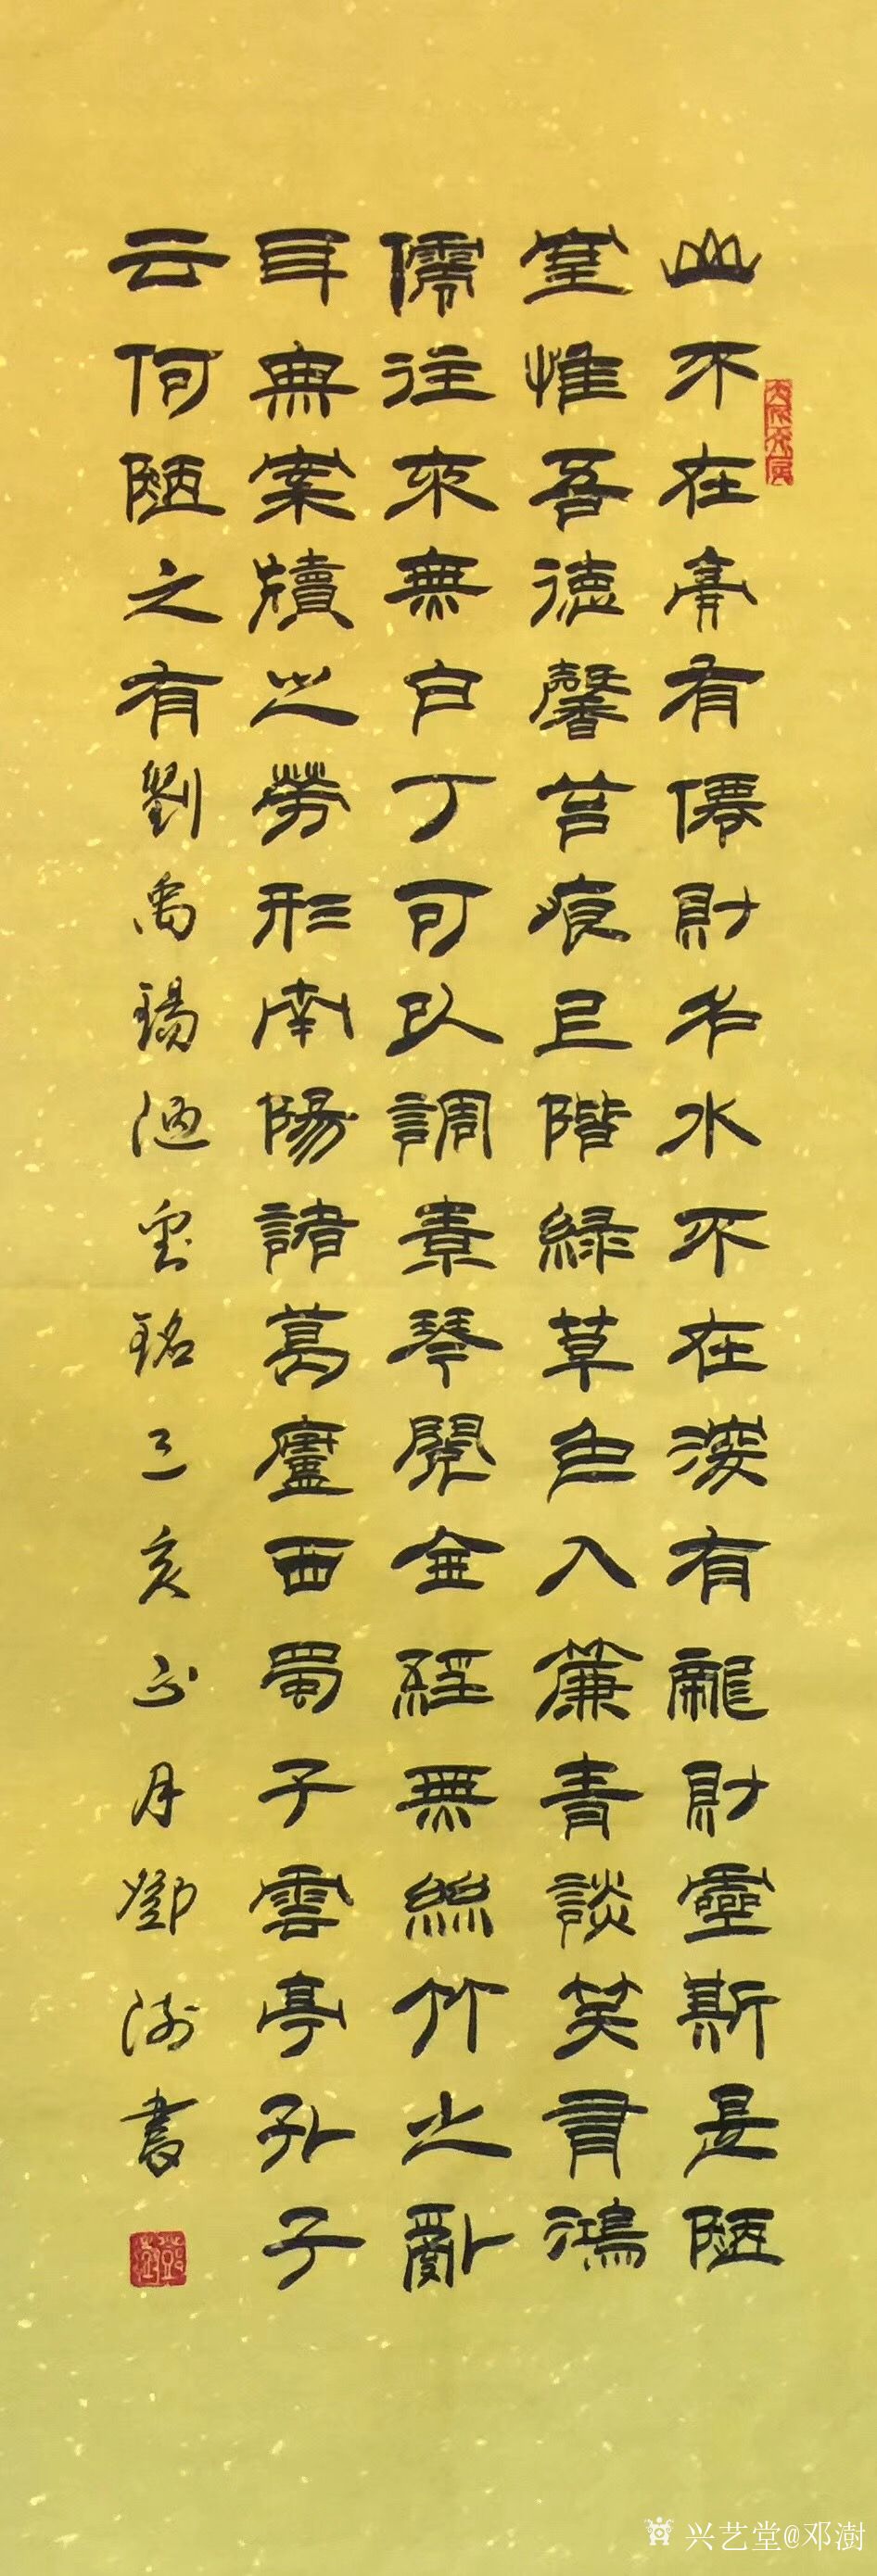 山不在高有僊則名水不在深有龍則靈斯是陋
室惟吾德馨苔痕上階綠草色入簾青談笑有鴻
儒往來無白丁可以調素琴閱金經無絲竹之亂
耳無案牘之勞形南陽諸葛廬西蜀子雲亭孔子
云何陋之有劉禹錫陋室銘己亥月鄧澍書
兴艺堂@邓澍